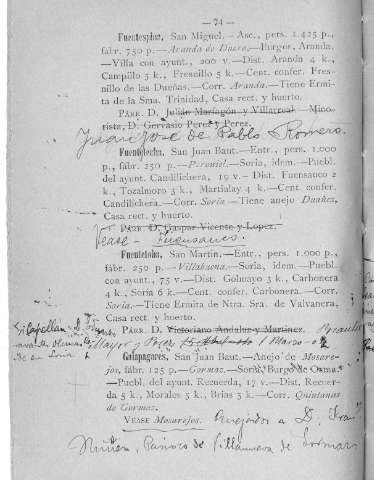 — 74 —
Fuentespina, San Miguel.—Asc., pers. 1.425 p.,
fábr. 750 p.—Aranda de Duero.—Burgos, Aranda,
—Villa con ayunt., 200 v.—Dist. Aranda 4 k.,
Campillo 5 k., Fresnillo 5 k.—Cent. confer. Fres-
nillo de las Dueñas.—Corr. Aranda.—Tiene Ermi-
ta de la Sma. Trinidad, Casa rect. y huerto.
PÁRR. D. Julián Marfagón y Villarreal Mino-
rista, D. Gervasio Perez y Perez.
Juan José de Pablo Romero.
Fuentelecha, San Juan Baut.—Entr., pers. 1.000
p., fábr. 250 p.—Peroniel.—Soria, idem.—Puebl.
del ayunt. Candilichera, 19 v.—Dist. Fuensauco 2
k., Tozalmoro 3 k., Martialay 4 k.—Cent. confer.
Candilichera.—Corr. Soria.—Tiene anejo Duáñez,
Casa rect. y huerto.
PÁRR. D. Gaspar Vicente y Lopez.
Vease - Fuensauco.
Fuentetoba, San Martin.—Entr., pers. 1.000 p.,
fábr. 250 p.—Villabuena.—Soria, idem.—Puebl.
con ayunt., 75 v.—Dist. Golmayo 3 k., Carbonera
4 k., Soria 6 k.—Cent. confer. Carbonera.—Corr.
Soria.—Tiene Ermita de Ntra. Sra. de Valvanera,
Casa rect. y huerto.
PÁRR. D. Victoriano Andaluz y Martinez. Braulio
Mayor y Marzo
Capellan
en Soria
Galapagares, San Juan Baut.—Anejo de Mosare-
jos, fábr. 125 p.—Gormaz.—Soria, Burgo de Osma.
—Puebl. del ayunt. Recuerda, 17 v.—Dist. Recuer-
da 5 k., Morales 5 k., Brias 5 k.—Corr. Quintanas
de Gormaz.
VÉASE Mosarejos. Anejados a D.
Párroco de Villanueva de Gormaz